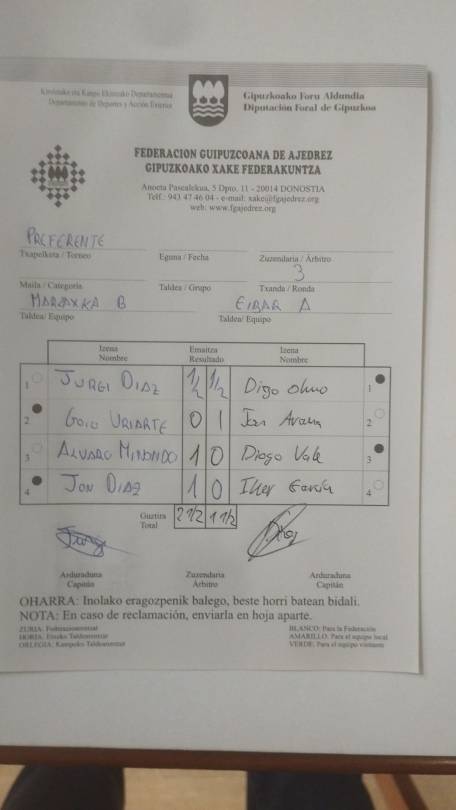 Kiroletako eta Kanpo Ekintzako Departamentua
Departamento de Deportes y Acción Exterior
Gipuzkoako Foru Aldundia
Diputación Foral de Gipuzkoa
FEDERACION GUIPUZCOANA DE AJEDREZ
GIPUZKOAKO XAKE FEDERAKUNTZA
Anoeta Pasealekua, 5 Dpto. 11 - 20014 DONOSTIA
Telf.: 943 47 46 04 - e-mail: xake@fgajedrez.org
web: www.fgajedrez.org
PREFERENTE
Txapelketa / Torneo Eguna / Fecha Zuzendaria / Árbitro
3
Maila / Categoria Taldea / Grupo Txanda / Ronda
MARTAXKA B EIBAR A
Taldea/ Equipo Taldea/ Equipo
Izena Emaitza Izena
Nombre Resultado Nombre
1 JURGI DIAZ 1/2 1/2 Digo 1
2 GOIO URIARTE 0 1 Jon 2
3 ALVARO MINONDO 1 0 Diogo Vale 3
4 JON DIAZ 1 0 Iker García 4
Guztira
Total 2 1/2 1 1/2
Arduraduna Zuzendaria Arduraduna
Capitán Árbitro Capitán
OHARRA: Inolako eragozpenik balego, beste horri batean bidali.
NOTA: En caso de reclamación, enviarla en hoja aparte.
ZURIA: Federazioarentzat BLANCO: Para la Federación
HORIA: Etxeko Taldearentzat AMARILLO: Para el equipo local
ORLEGIA: Kanpoko Taldearentzat VERDE: Para el equipo visitante